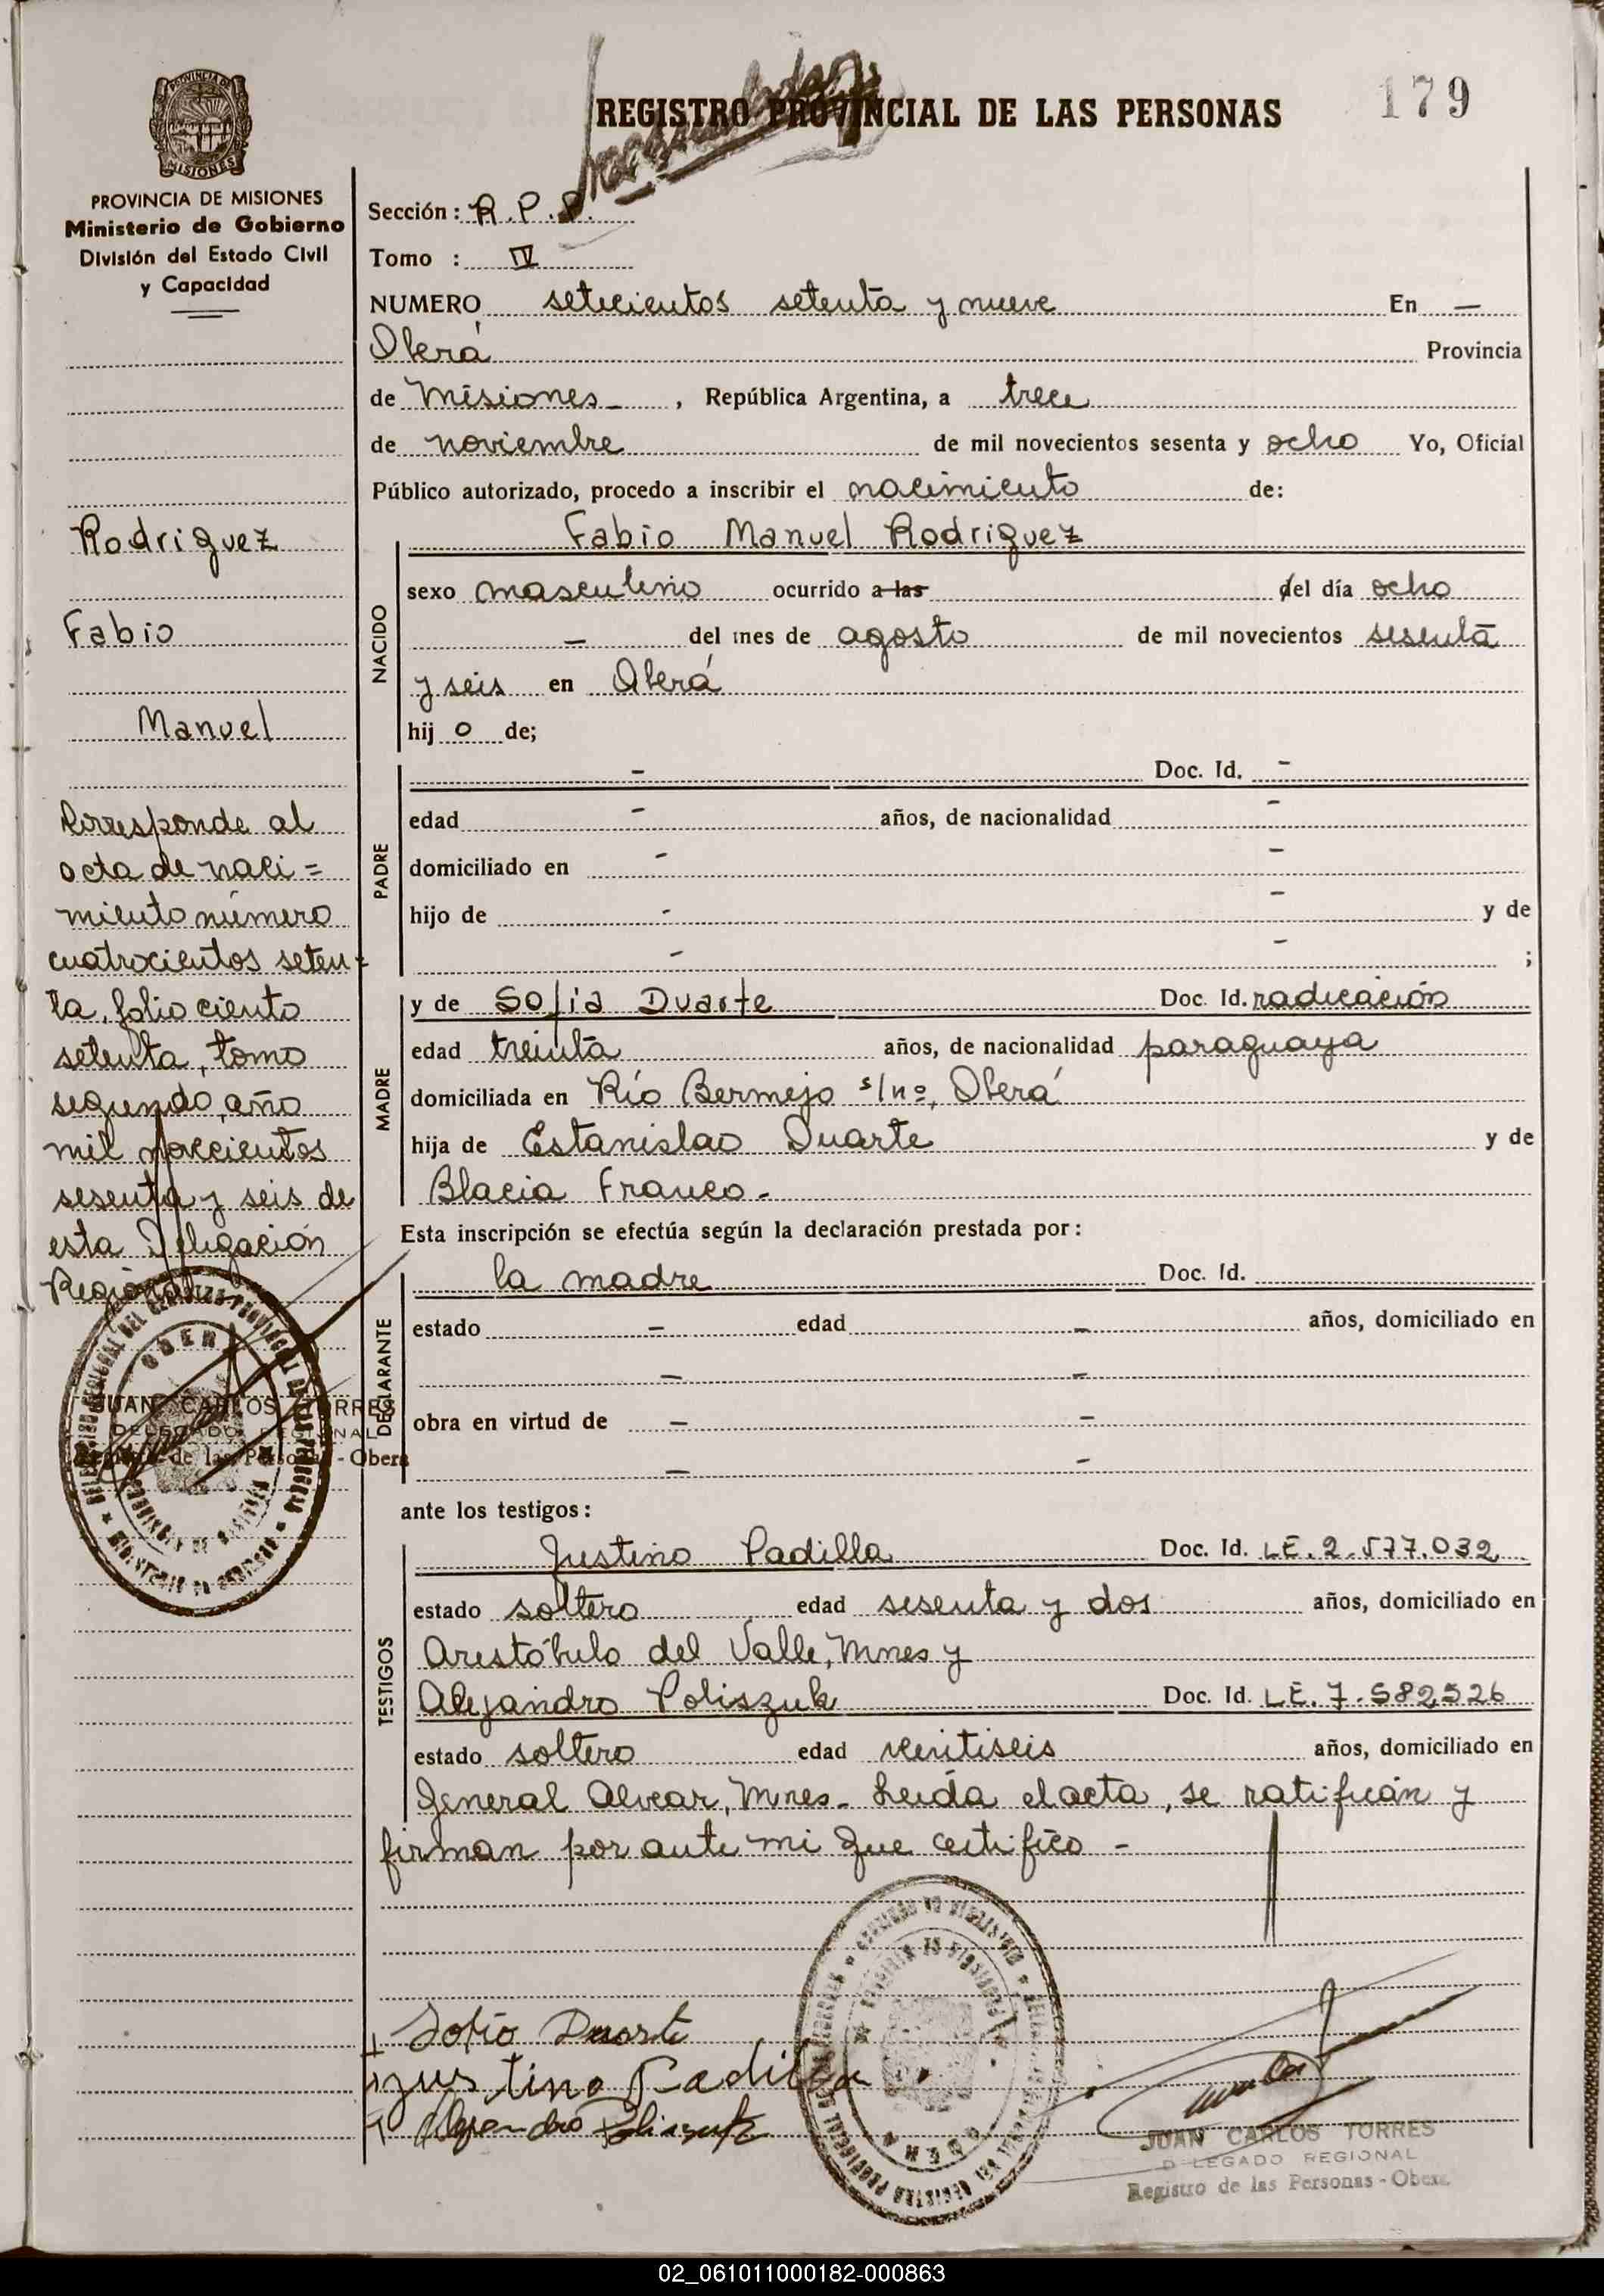 179
REGISTRO PROVINCIAL DE LAS PERSONAS
PROVINCIA DE MISIONES
Ministerio de Gobierno
División del Estado Civil
y Capacidad
Rodriguez
Fabio
Manuel
Corresponde al
acta de naci=
miento número
cuatrocientos seten=
ta, folio ciento
setenta, tomo
segundo, año
mil novecientos
sesenta y seis de
esta Delegación
Regional
OBERA
JUAN CARLOS TORRES
DELEGADO REGIONAL
Registro de las Personas - Obera
Sección: R.P.P.
Tomo : IV
NUMERO setecientos setenta y nueve En —
Oberá Provincia
de Misiones_, República Argentina, a trece
de noviembre de mil novecientos sesenta y ocho Yo, Oficial
Público autorizado, procedo a inscribir el nacimiento de:
NACIDO
Fabio Manuel Rodriguez
sexo masculino ocurrido a las del día ocho
— del mes de agosto de mil novecientos sesenta
y seis en Oberá
hij o de;
PADRE
- Doc. Id. -
edad - años, de nacionalidad -
domiciliado en - -
hijo de - - y de
- - ;
MADRE
y de Sofia Duarte Doc. Id. radicación
edad treinta años, de nacionalidad paraguaya
domiciliada en Río Bermejo s/nº, Oberá
hija de Estanislao Duarte y de
Blacia Franco-
Esta inscripción se efectúa según la declaración prestada por:
DECLARANTE
la madre Doc. Id.
estado — edad — años, domiciliado en
— —
obra en virtud de — —
— —
ante los testigos:
TESTIGOS
Justino Padilla Doc. Id. LE.2.577.032
estado soltero edad sesenta y dos años, domiciliado en
Aristóbulo del Valle, Mnes y
Alejandro Poliszuk Doc. Id. LE.7.582526
estado soltero edad veintiseis años, domiciliado en
General Alvear, Mnes- Leída el acta, se ratifican y
firman por ante mi que certifico -
Sofia Duarte
Justino Padilla
Alejandro Poliszuk
OBERA
JUAN CARLOS TORRES
DELEGADO REGIONAL
Registro de las Personas - Obera
02_061011000182-000863